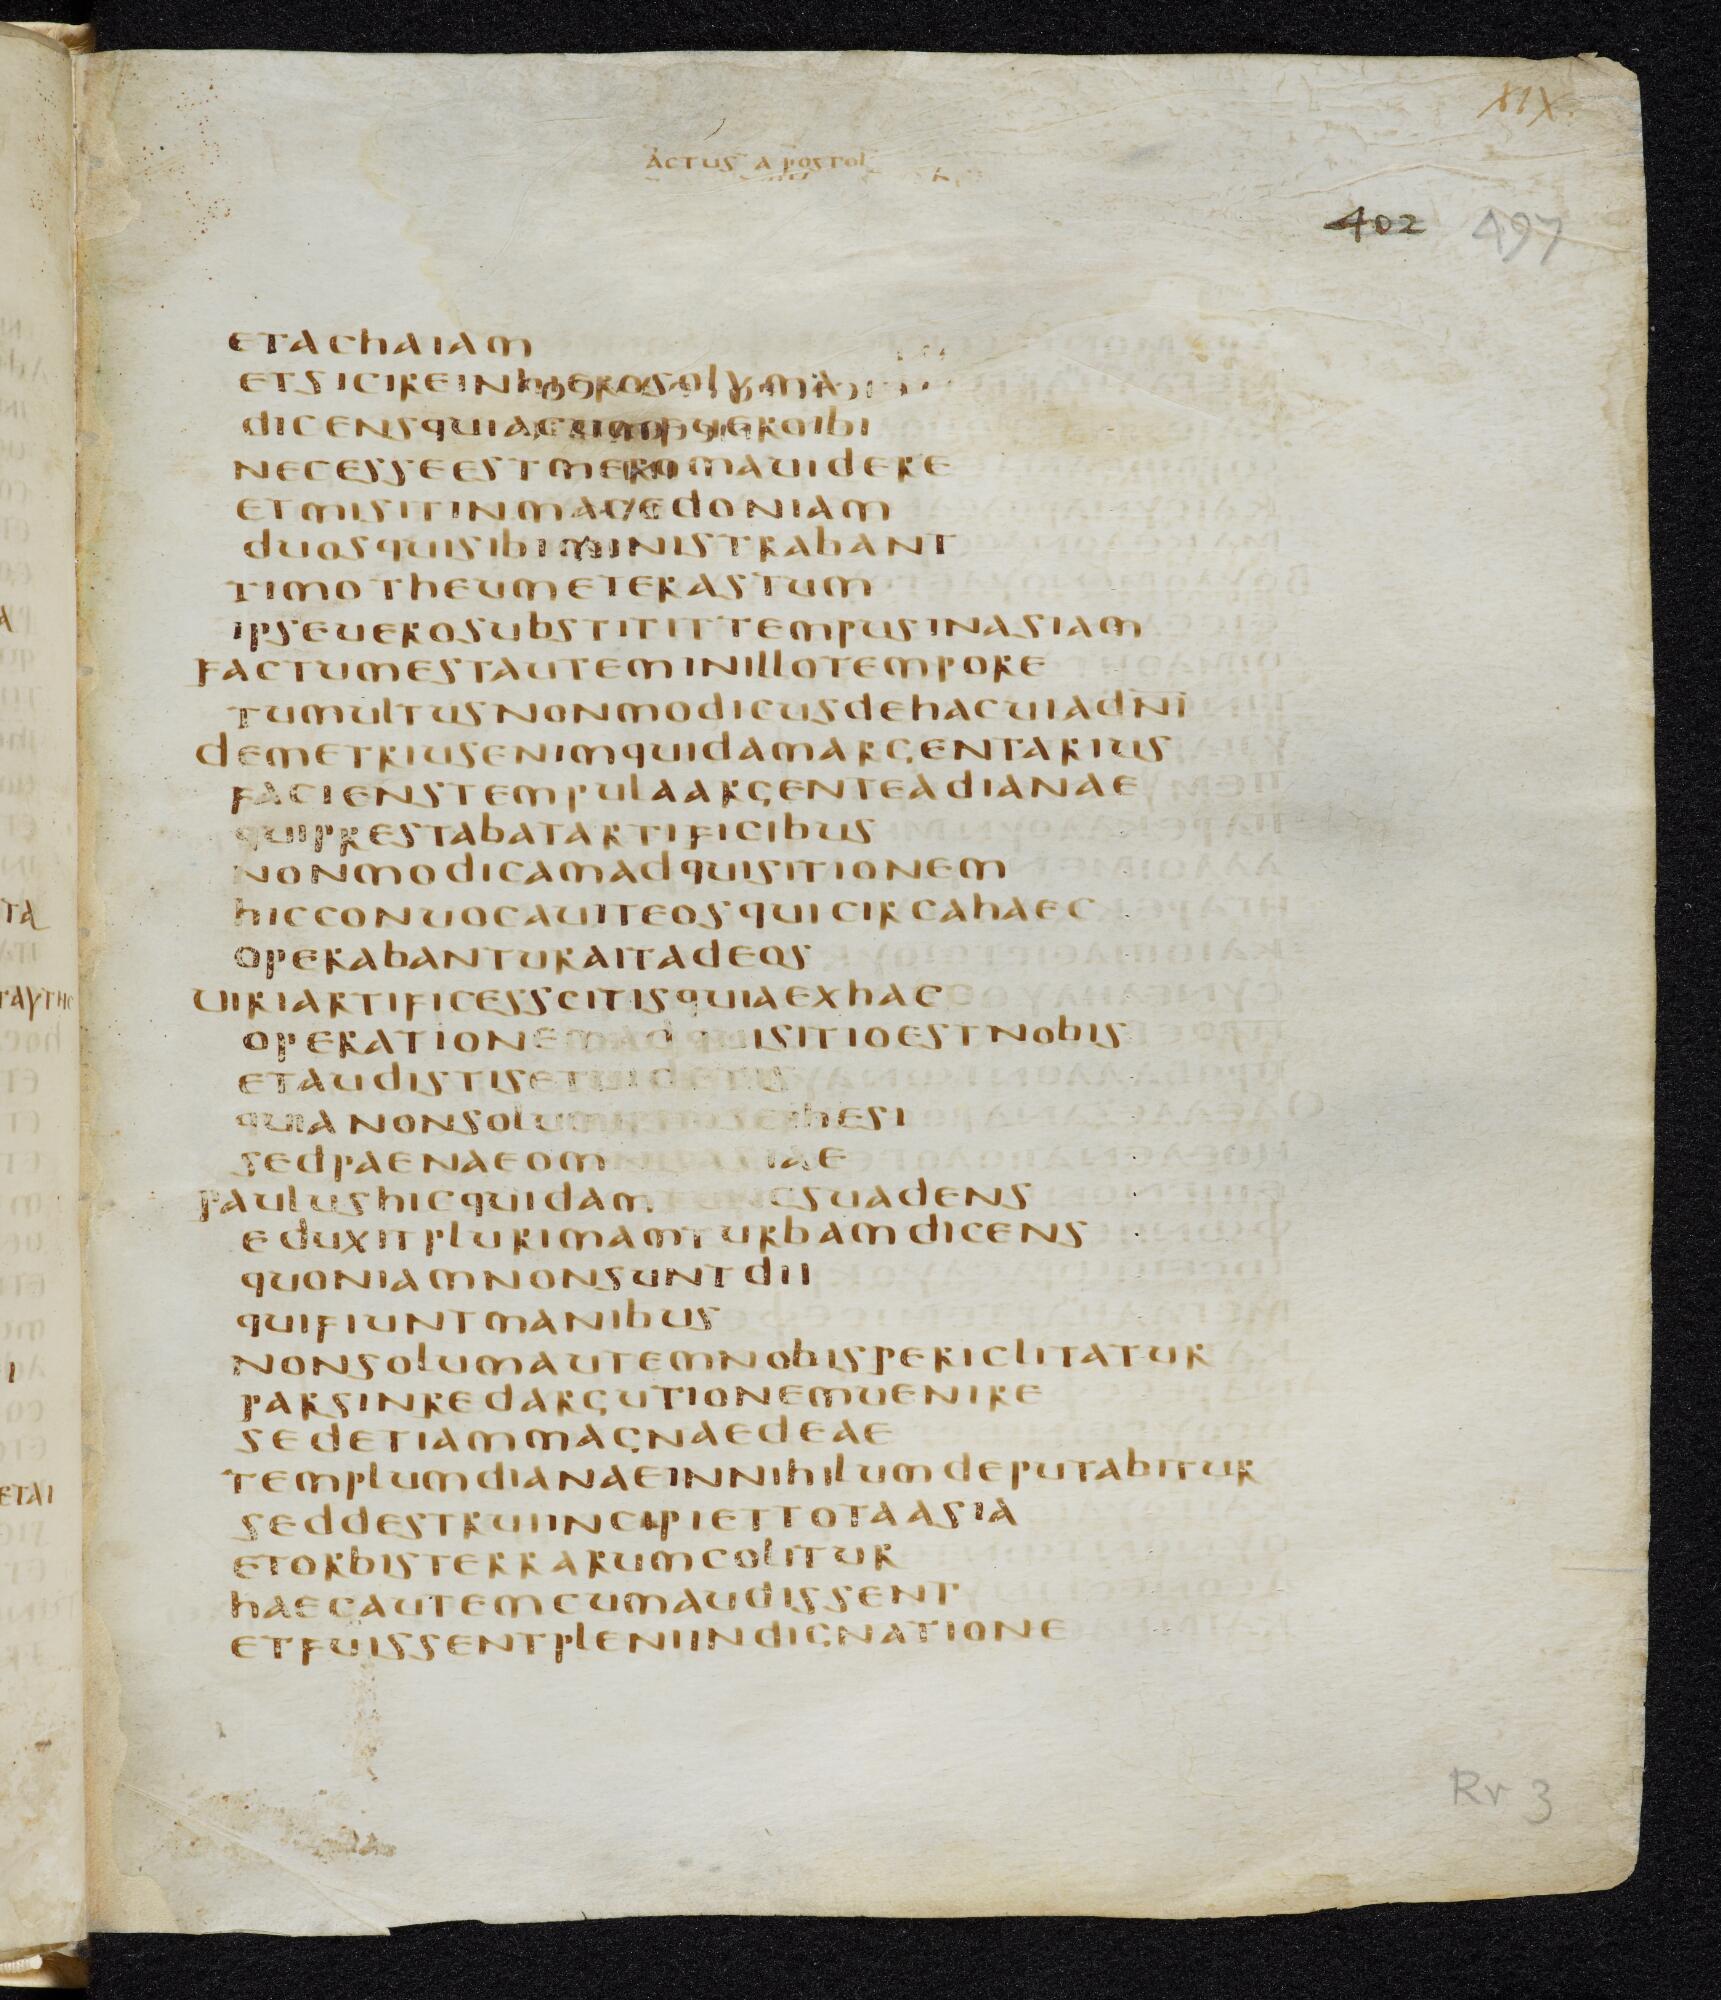 XIX.
ACTUS APOSTOL
402 497
ETACHAIAM
ETSICIREINHIEROSOLYMA
DICENSQUIACUMFUEROIBI
NECESSEESTMEROMAUIDERE
ETMISITINMACEDONIAM
DUOSQUISIBIMINISTRABANT
TIMOTHEUMETERASTUM
IPSEUEROSUBSTITITTEMPUSINASIAM
FACTUMESTAUTEMINILLOTEMPORE
TUMULTUSNONMODICUSDEHACUIADN̄I
DEMETRIUSENIMQUIDAMARGENTARIUS
FACIENSTEMPULAARGENTEADIANAE
QUIPRESTABATARTIFICIBUS
NONMODICAMADQUISITIONEM
HICCONUOCAUITEOSQUICIRCAHAEC
OPERABANTURAITADEOS
UIRIARTIFICESSCITISQUIAEXHAC
OPERATIONEMADQUISITIOESTNOBIS
ETAUDISTISETUIDETIS
QUIANONSOLUM HESI
SEDPAENAEOM IAE
PAULUSHICQUIDAM CSUADENS
EDUXITPLURIMAMTURBAMDICENS
QUONIAMNONSUNTDII
QUIFIUNTMANIBUS
NONSOLUMAUTEMNOBISPERICLITATUR
PARSINREDARGUTIONEMUENIRE
SEDETIAMMAGNAEDEAE
TEMPLUMDIANAEINNIHILUMDEPUTABITUR
SEDDESTRUIINCIPIETTOTAASIA
ETORBISTERRARUMCOLITUR
HAECAUTEMCUMAUDISSENT
ETFUISSENTPLENIINDIGNATIONE
Rr 3